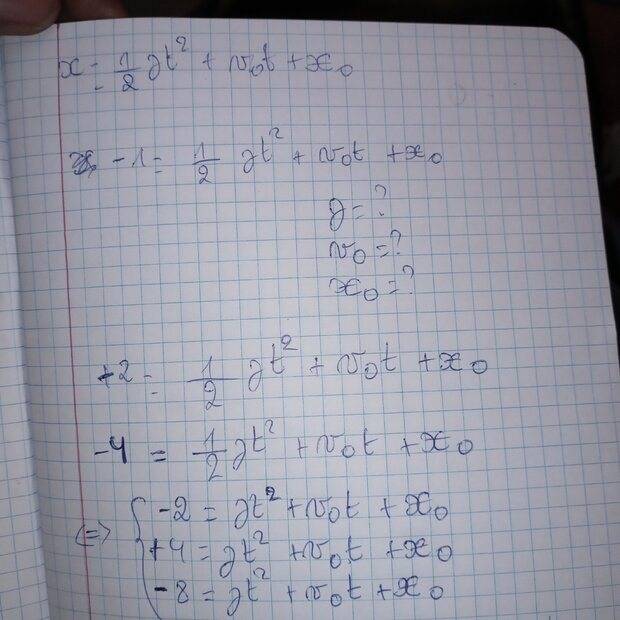 x = 1/2 γt² + v₀t + x₀
-1 = 1/2 γt² + v₀t + x₀
γ = ?
v₀ = ?
x₀ = ?
+2 = 1/2 γt² + v₀t + x₀
-4 = 1/2 γt² + v₀t + x₀
(=) { -2 = γt² + v₀t + x₀
+4 = γt² + v₀t + x₀
-8 = γt² + v₀t + x₀